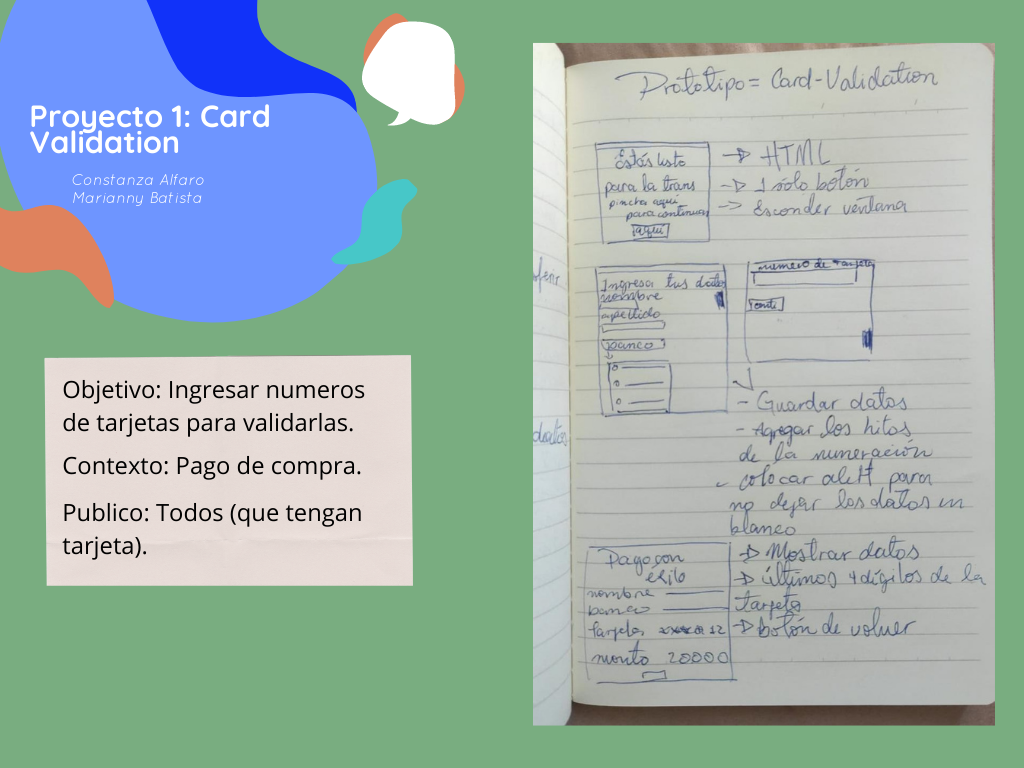 Proyecto 1: Card
Validation
Constanza Alfaro
Marianny Batista
Objetivo: Ingresar numeros
de tarjetas para validarlas.
Contexto: Pago de compra.
Publico: Todos (que tengan
tarjeta).
Prototipo = Card-Validation
Estás listo
para la trans
pincha aquí
para continuar
aquí
→ HTML
→ 1 sólo botón
→ Esconder ventana
Ingresa tus datos
nombre
apellido
banco
numero de tarjeta
- Guardar datos
- Agregar los hitos
de la numeración
- colocar alert para
no dejar los datos en
blanco
Pago con
éxito
nombre
banco
tarjeta
monto 20000
→ Mostrar datos
→ últimos 4 dígitos de la
tarjeta
→ botón de volver
datos